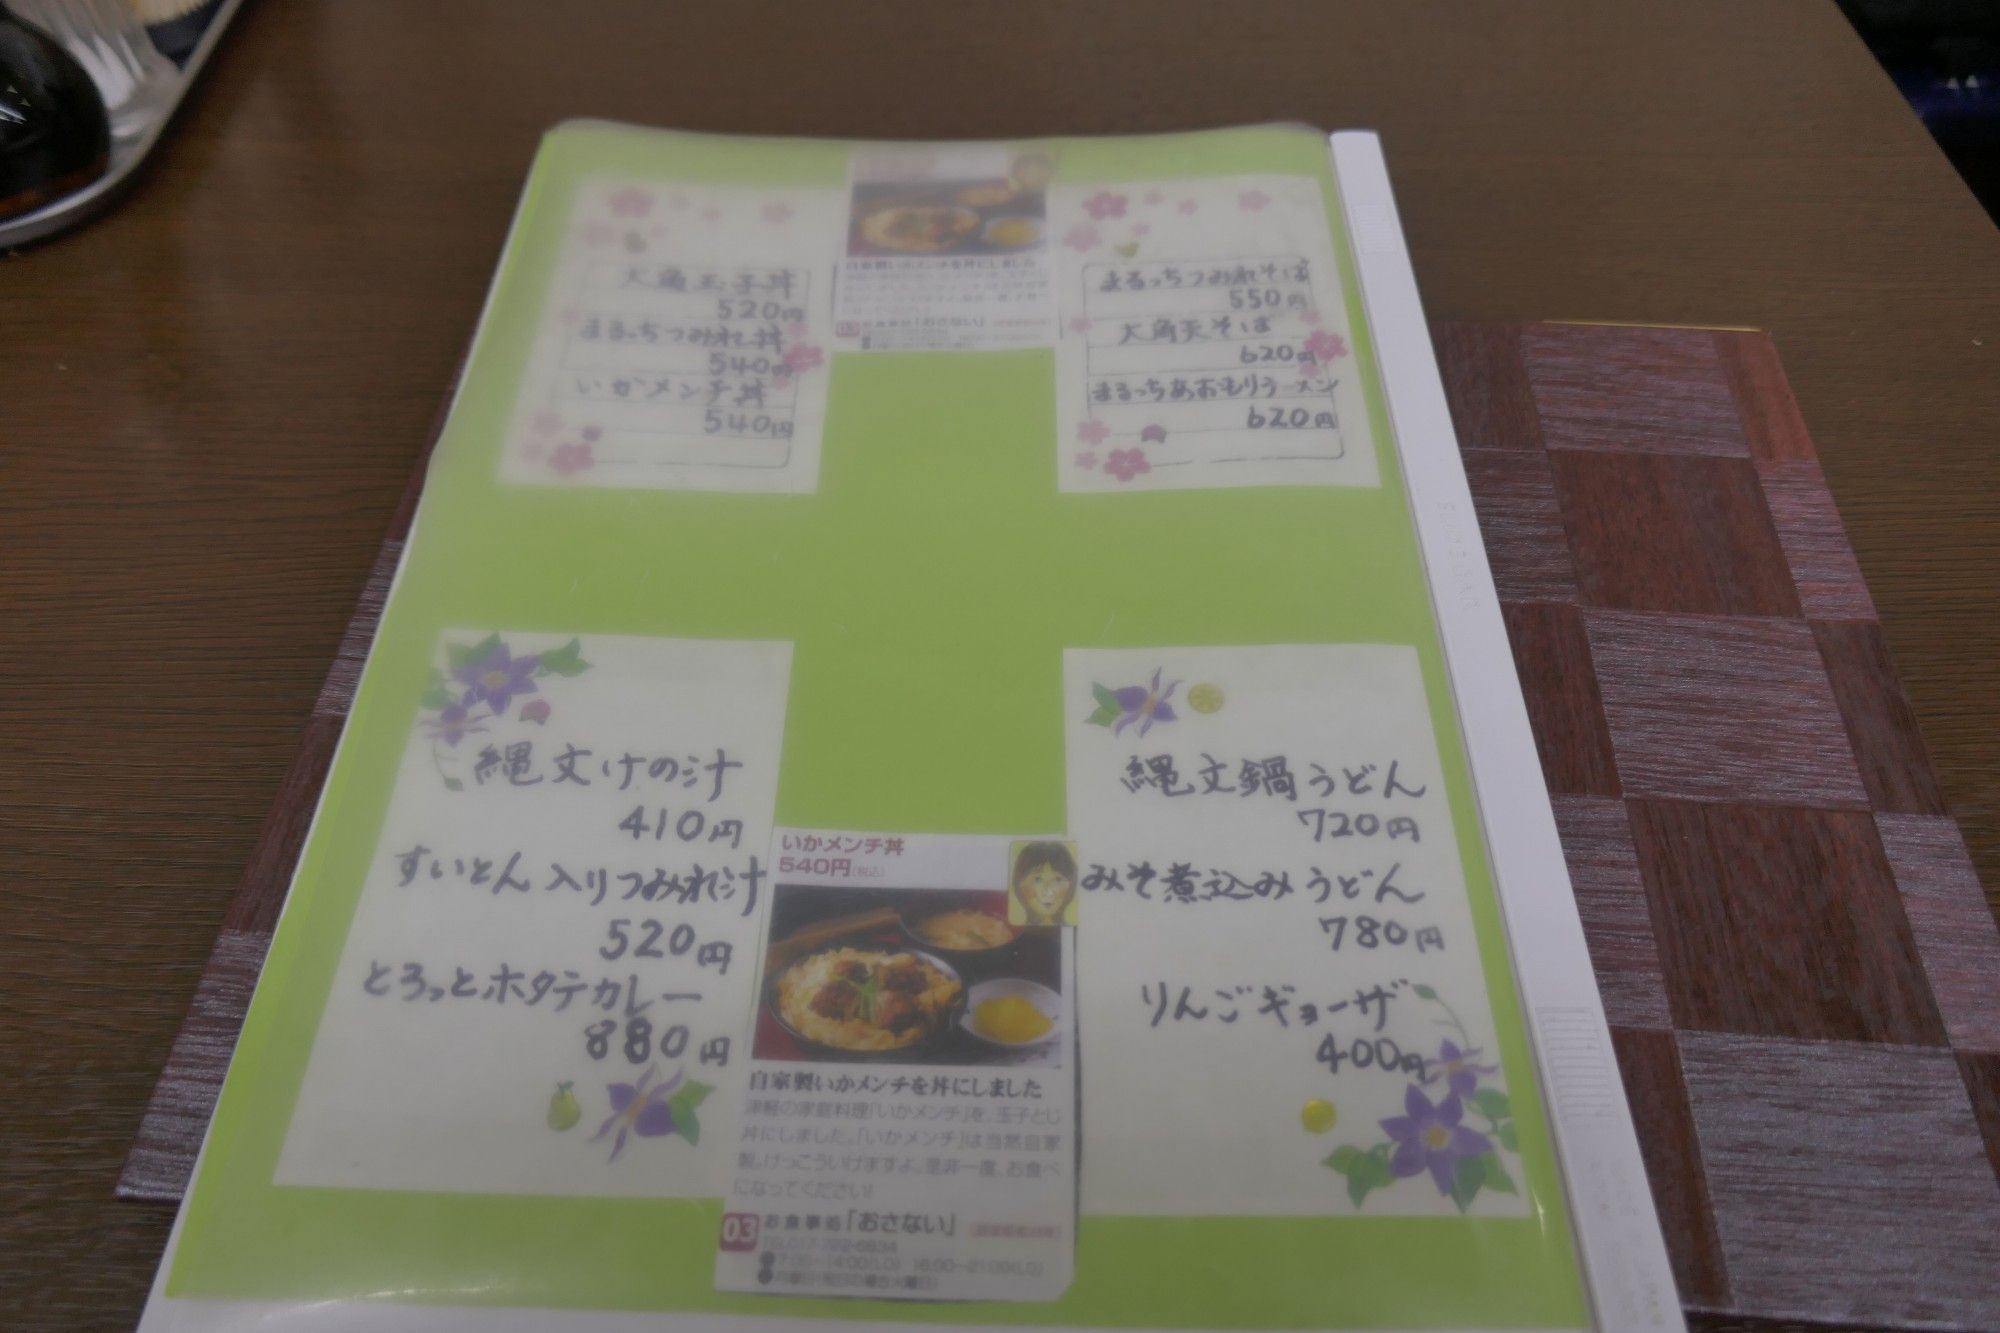 大角玉子丼
520円
まるっちつみれ丼
540円
いかメンチ丼
540円
自家製いかメンチを丼にしました
03 お食事処「おさない」
まるっちつみれそば
550円
大角天そば
620円
まるっちあおもりラーメン
620円
縄文けの汁
410円
すいとん入りつみれ汁
520円
とろっとホタテカレー
880円
いかメンチ丼
540円(税込)
自家製いかメンチを丼にしました
津軽の家庭料理「いかメンチ」を、玉子とじ
丼にしました。「いかメンチ」は当然自家
製。けっこういけますよ。是非一度、お食べ
になってください!
03 お食事処「おさない」
TEL017-722-6834
7:00~14:00(L.O) 16:00~21:00(L.O)
縄文鍋うどん
720円
みそ煮込みうどん
780円
りんごギョーザ
400円